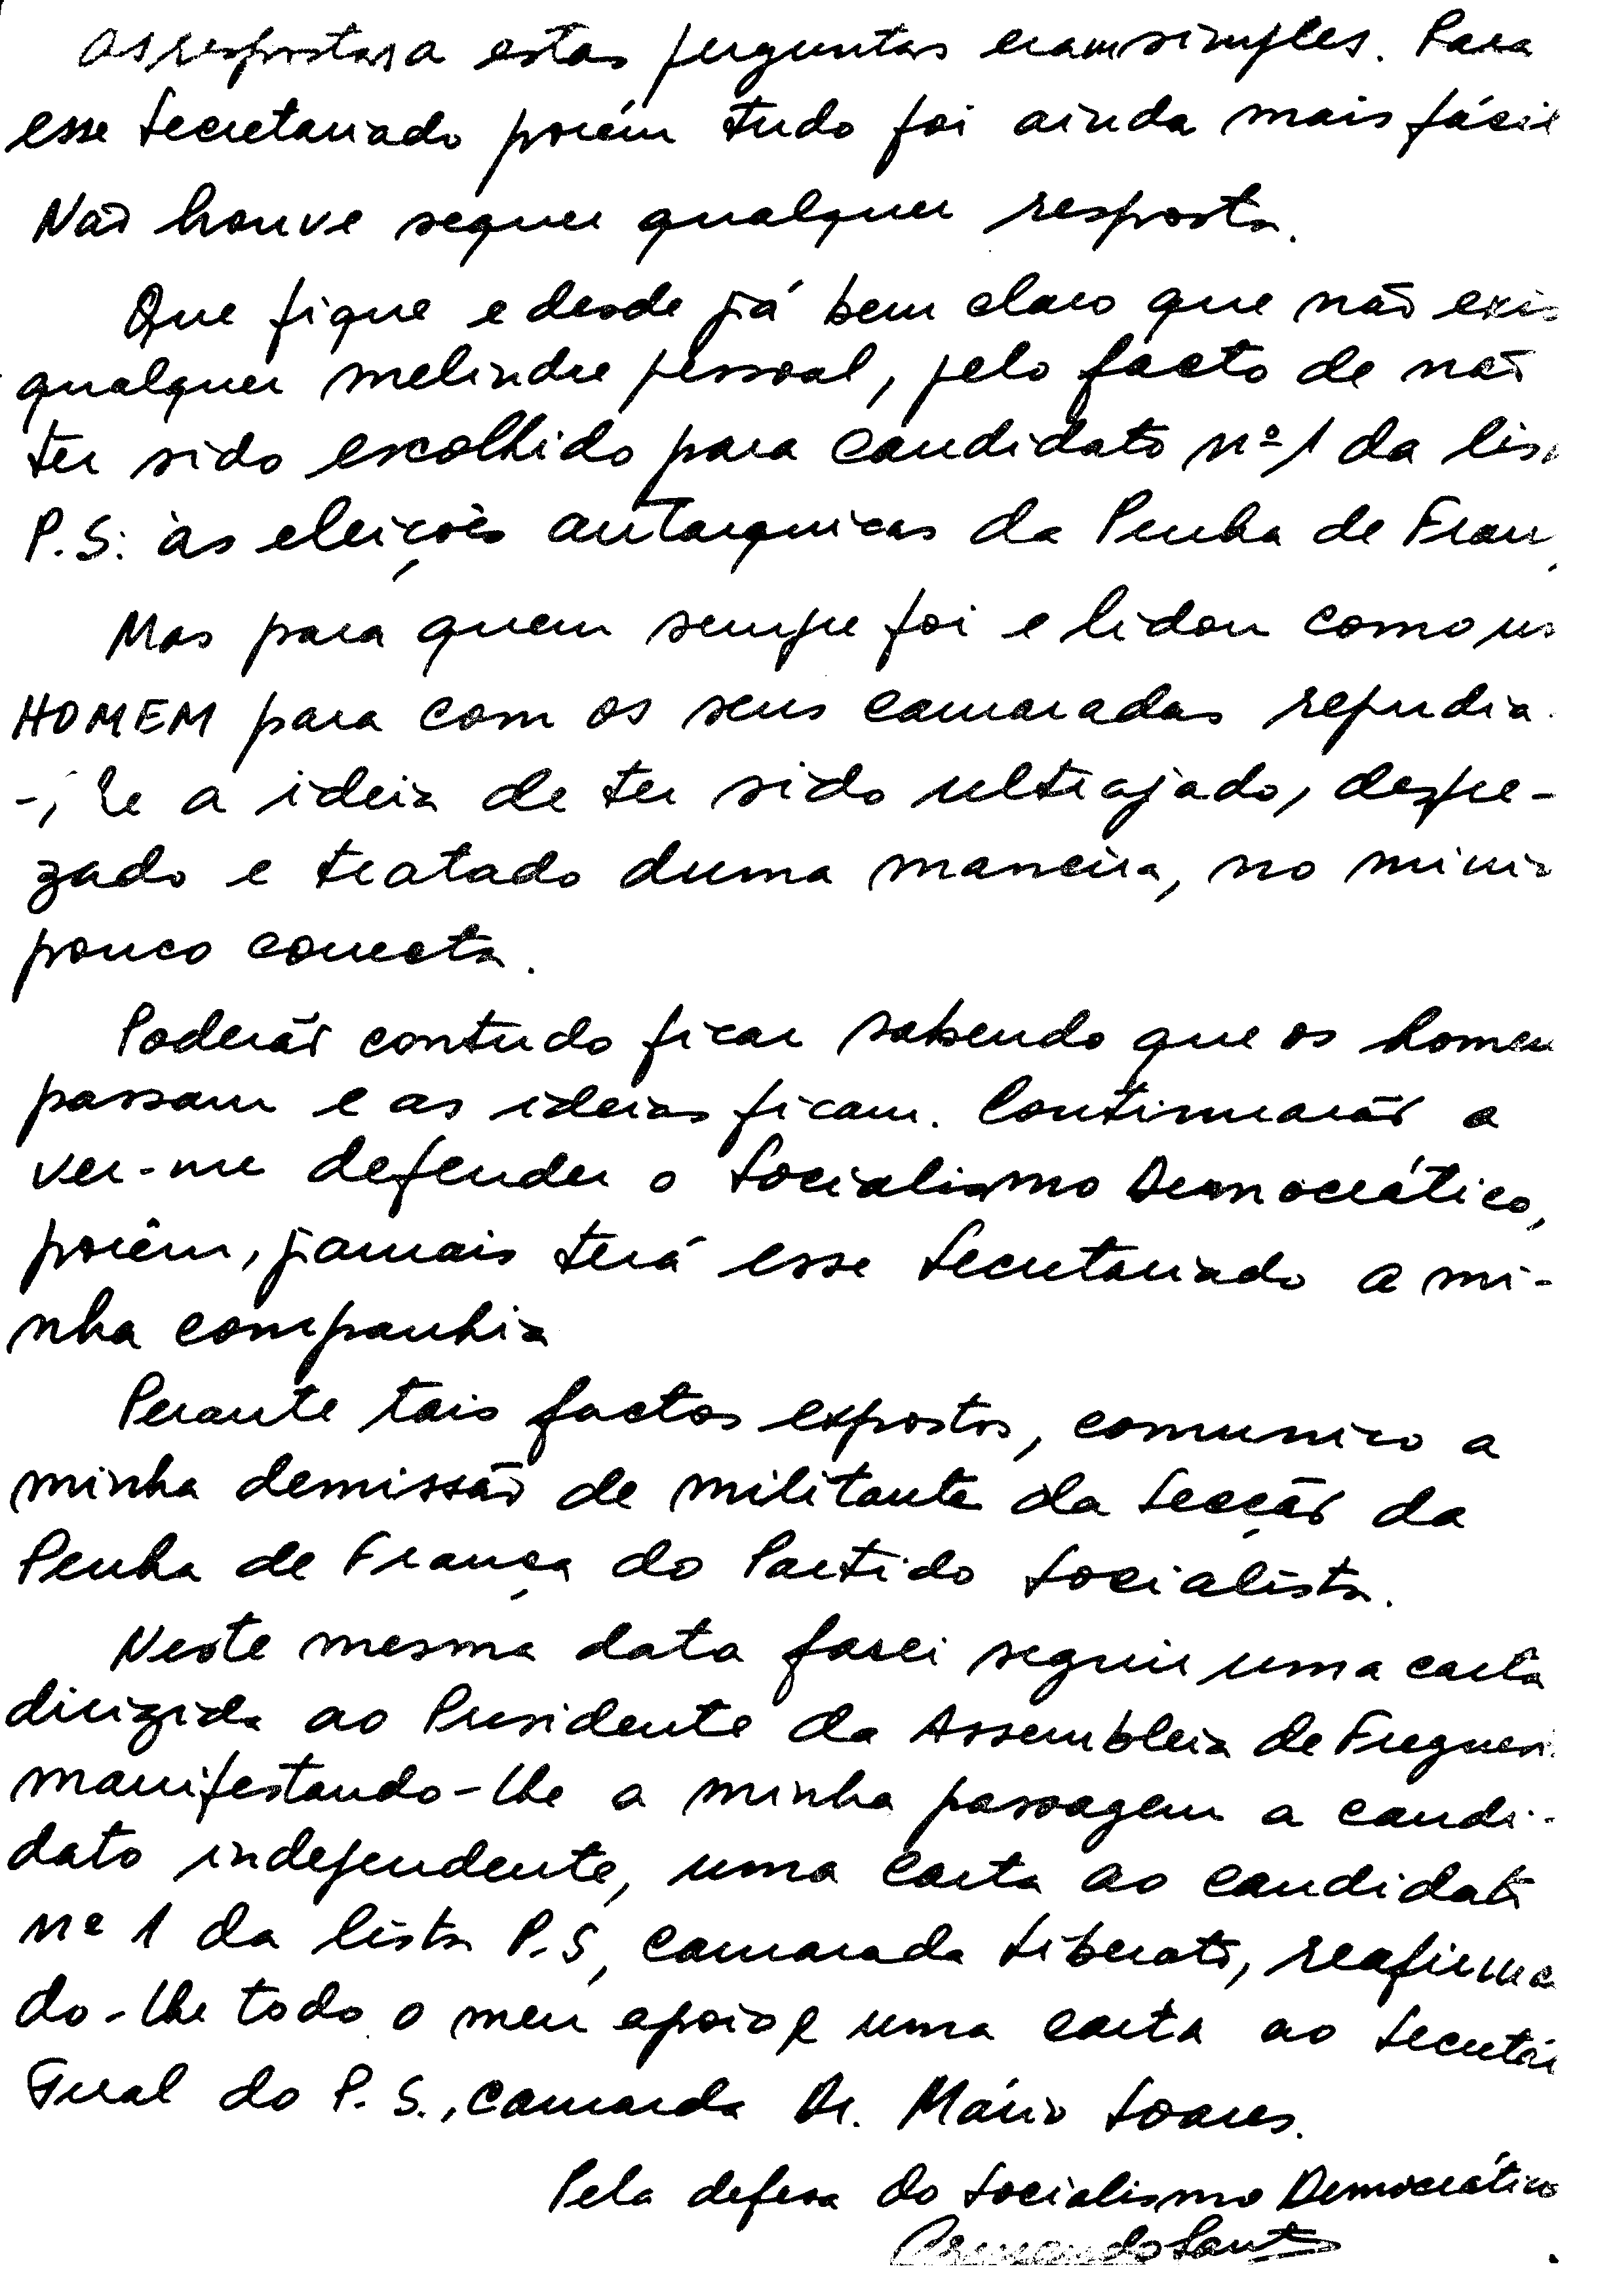 As respostas a estas perguntas eram simples. Para
esse Secretariado porém tudo foi ainda mais fácil
Não houve sequer qualquer resposta.
Que fique e desde já bem claro que não exis
qualquer melindre pessoal, pelo facto de não
ter sido escolhido para candidato nº 1 da lis
P.S. às eleições autarquicas da Penha de Fran
Mas para quem sempre foi e lidou como um
HOMEM para com os seus camaradas repudia-
-lhe a ideia de ter sido ultrajado, despre-
zado e tratado duma maneira, no mini
pouco correcta.
Poderão contudo ficar sabendo que os homen
passam e as ideias ficam. Continuarão a
ver-me defender o Socialismo Democrático,
porêm, jamais terá esse Secretariado a mi-
nha companhia
Perante tais factos expostos, comunico a
minha demissão de militante da Secção da
Penha de França do Partido Socialista.
Neste mesma data farei seguir uma carta
dirigida ao Presidente da Assembleia de Freguesi
manifestando-lhe a minha passagem a candi-
dato independente, uma carta ao candidato
nº 1 da lista P.S, camarada Liberato, reafirma
do-lhe todo o meu apoio e uma carta ao Secretári
Geral do P.S., camarda Dr. Mário Soares.
Pela defesa do Socialismo Democrático
Armando Santos